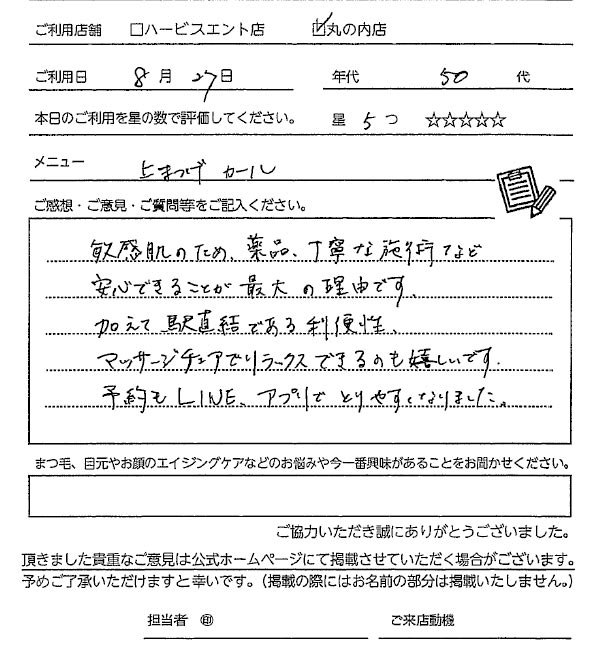 ご利用店舗 □ハービスエント店 ☑丸の内店
ご利用日 8月27日 年代 50代
本日のご利用を星の数で評価してください。 星 5つ ☆☆☆☆☆
メニュー 上まつげ カール
ご感想・ご意見・ご質問等をご記入ください。
敏感肌のため、薬品、丁寧な施術など
安心できることが最大の理由です。
加えて駅直結である利便性、
マッサージチェアでリラックスできるのも嬉しいです。
予約もLINE、アプリでとりやすくなりました。
まつ毛、目元やお顔のエイジングケアなどのお悩みや今一番興味があることをお聞かせください。
ご協力いただき誠にありがとうございました。
頂きました貴重なご意見は公式ホームページにて掲載させていただく場合がございます。
予めご了承いただけますと幸いです。（掲載の際にはお名前の部分は掲載いたしません。）
担当者 ㊞ ご来店動機